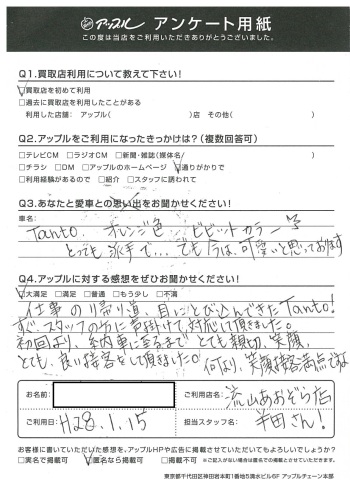 アップル アンケート用紙
この度は当店をご利用いただきありがとうございました。
Q1.買取店利用について教えて下さい!
☑買取店を初めて利用
□過去に買取店を利用したことがある
利用した店舗: アップル( )店 その他( )
Q2.アップルをご利用になったきっかけは?(複数回答可)
□テレビCM □ラジオCM □新聞・雑誌(媒体名/ )
□チラシ □DM □アップルのホームページ ☑通りがかりで
□利用経験があるので □紹介 □スタッフに誘われて
Q3.あなたと愛車との思い出をお聞かせください!
車名:
Tanto. オレンジ色 ビビットカラー
とっても派手で… でも今は、可愛いと思っております
Q4.アップルに対する感想をぜひお聞かせください!
☑大満足 □満足 □普通 □もう少し □不満
仕事の帰り道、目にとび込んできたTanto!
すぐ、スタッフの方に声掛けて、対応して頂きました。
初回より、納車に至るまで とても親切、笑顔、
とても、良い接客をして頂きました。何より、笑顔接客満点ですね
お名前:
ご利用店名: 流山あおぞら店
ご利用日: H28.1.15
担当スタッフ名: 半田さん!
お客様に書いていただいた感想を、アップルHPや広告に掲載させていただいてもよろしいでしょうか?
□実名で掲載可 ☑匿名なら掲載可 □掲載不可 ※ご記入がない場合は匿名での掲載とさせていただきます。
東京都千代田区神田岩本町1番地5清水ビル6F アップルチェーン本部